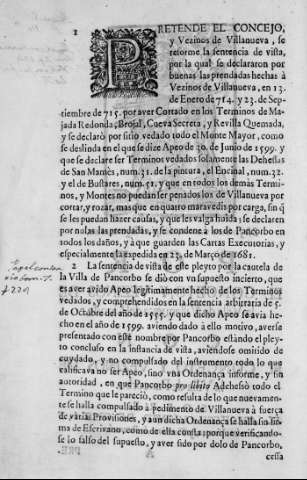 1 PRETENDE EL CONCEJO,
y Vezinos de Villanueva, se
reforme la sentencia de vista,
por la qual se declararon por
buenas las prendadas hechas à
Vezinos de Villanueva, en 13.
de Enero de 714. y 23. de Sep-
tiembre de 715. por aver Cortado en los Terminos de Ma-
jada Redonda, Brosal, Cueva Secreta, y Revilla Quemada,
y se declarò por sitio vedado todo el Monte Mayor, como
se deslinda en el que se dize Apeo de 30. de Junio de 1599. y
que se declare ser Terminos vedados solamente las Dehessas
de San Mamès, num. 31. de la pintura, el Encinal, num. 32.
y el de Bustares, num. 51. y que en todos los demàs Termi-
nos, y Montes no puedan ser penados los de Villanueva por
cortar, y rozar, mas que en quatro maravedis por carga, sin q̃
se les puedan hazer causas, y que les valga huida; se declaren
por nulas las prendadas, y se condene à los de Pancorbo en
todos los daños, y à que guarden las Cartas Executorias, y
especialmente la expedida en 23. de Março de 1681.
2 La sentencia de vista de este pleyto por la cautela de
la Villa de Pancorbo se diò con vn supuesto incierto, que
es aver avido Apeo legitimamente hecho de los Terminos
vedados, y comprehendidos en la sentencia arbitraria de 5.
de Octubre del año de 1555. y que dicho Apeo se avia he-
cho en el año de 1599. aviendo dado à ello motivo, averse
presentado con este nombre por Pancorbo estàndo el pley-
to concluso en la instancia de vista, aviendose omitido de
cuydado, y no compulsado del instrumento todo lo que
calificava no ser Apeo, sino vna Ordenança informe, y sin
autoridad, en que Pancorbo pro libito Adehesò todo el
Termino que le pareciò, como resulta de lo que nuevamen-
te se halla compulsado à pedimento de Villanueva à fuerça
de varias Provisiones, y aun dicha Ordenança se halla sin fir-
ma de Escrivano, como de ella consta; porque verificando-
se lo falso del supuesto, y aver sido por dolo de Pancorbo,
cessa